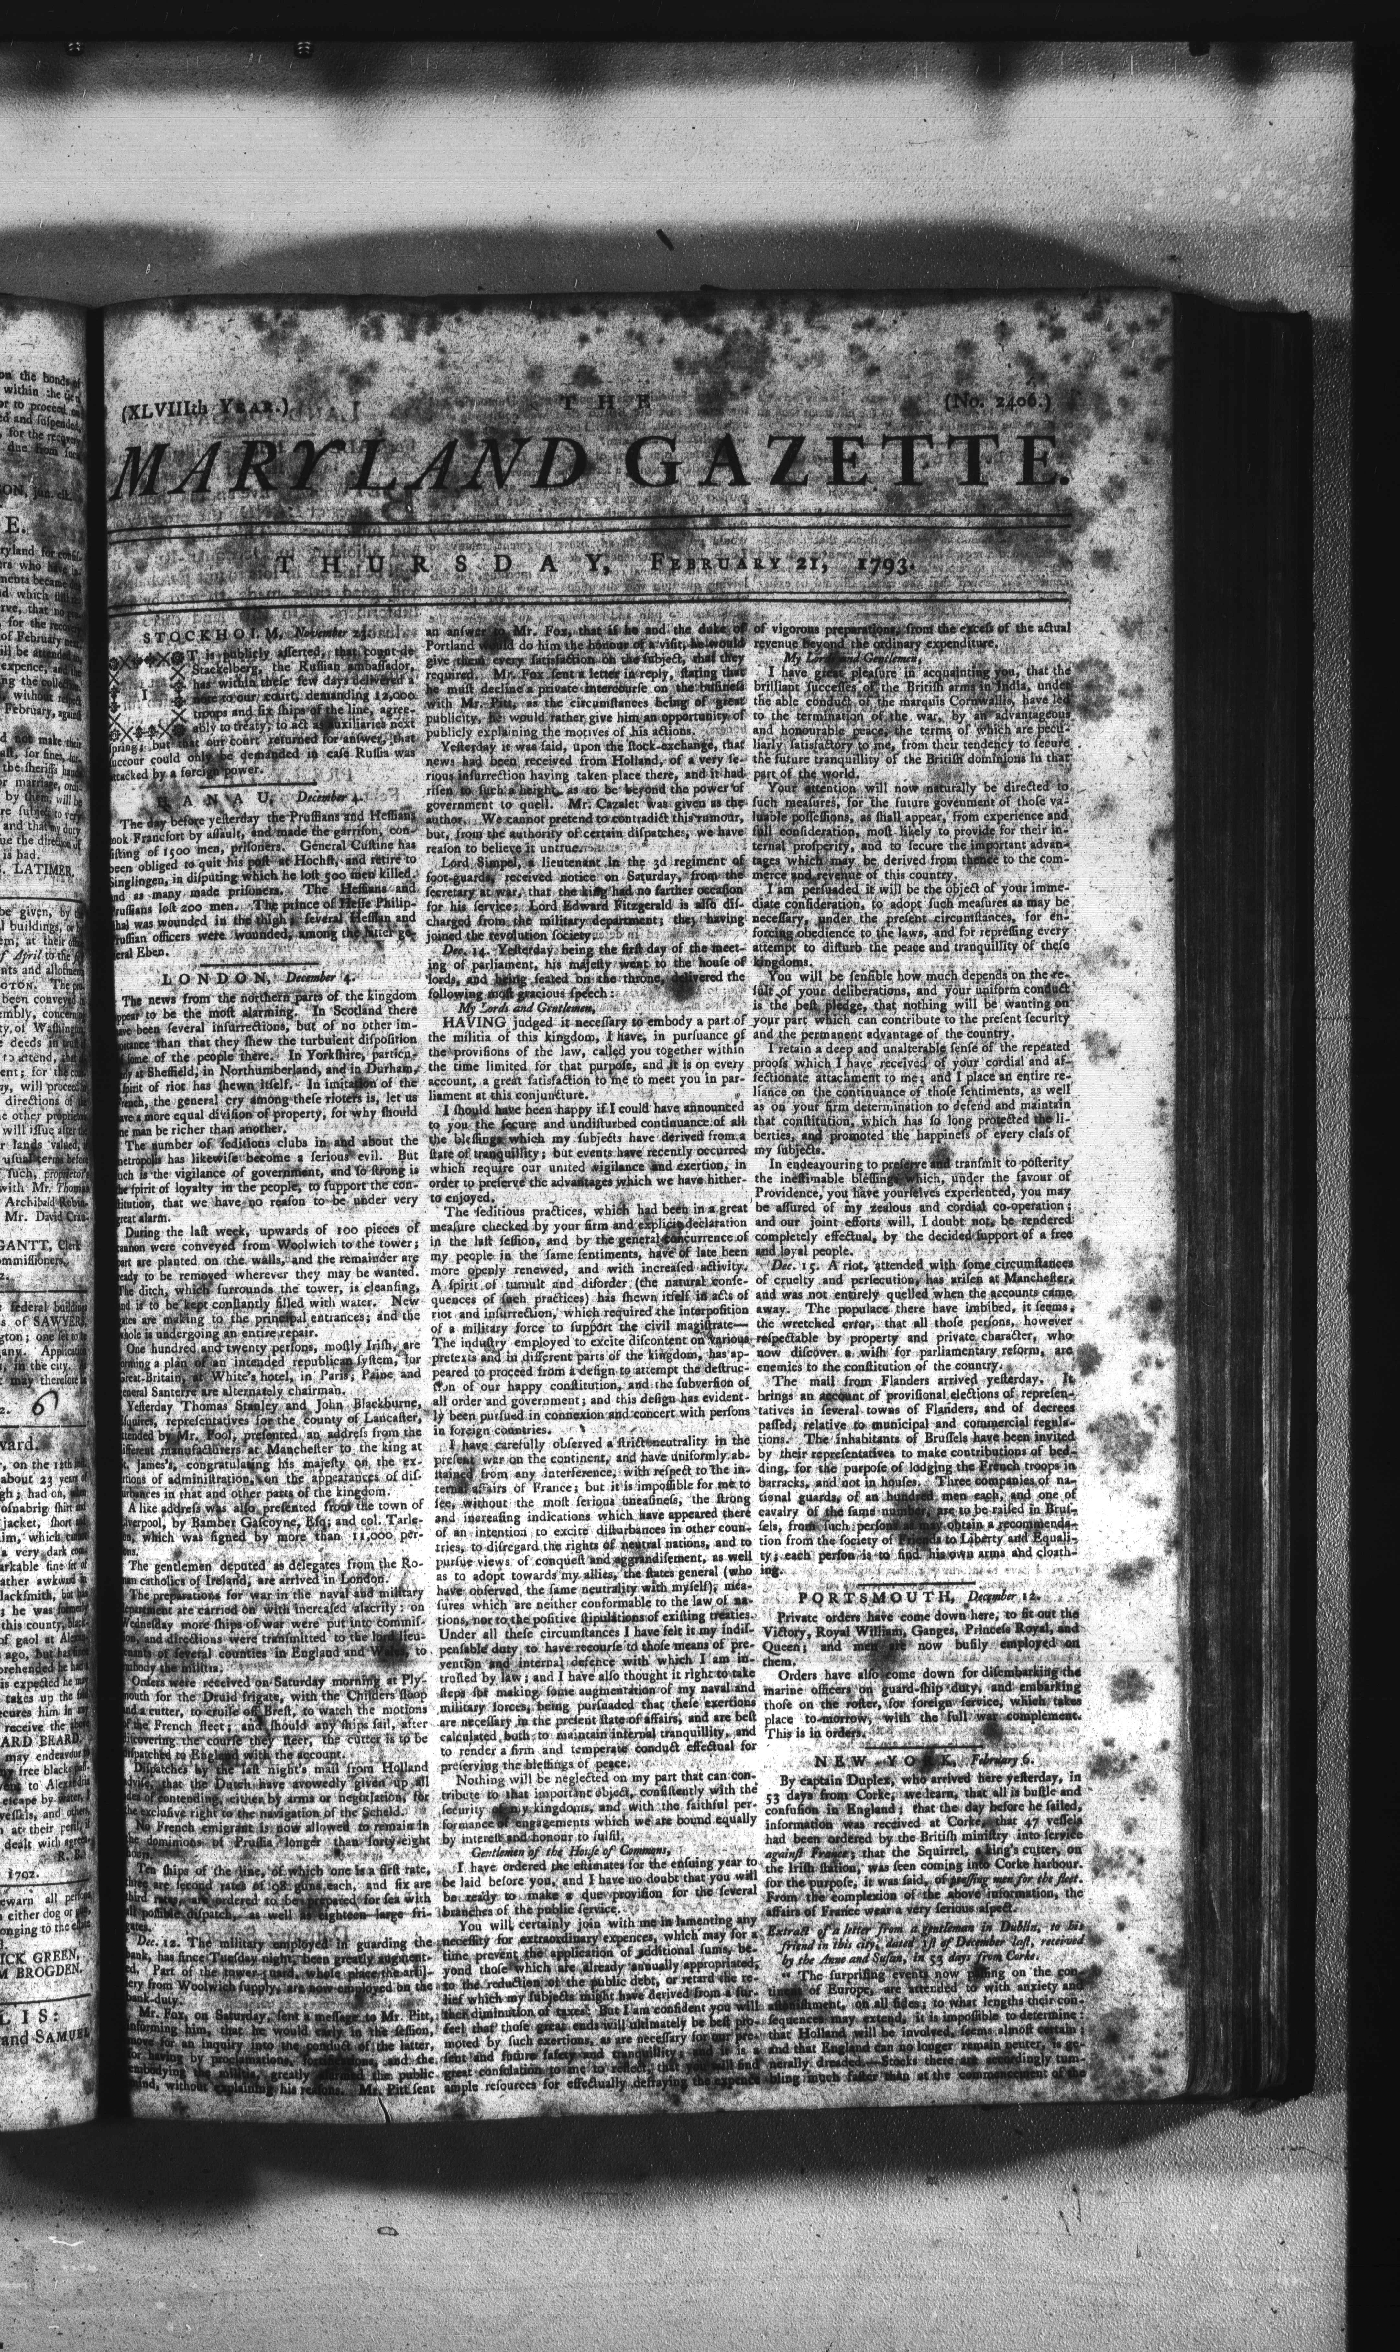 (XLVIIIth YEAR.)
THE
(No. 2406.)
MARYLAND GAZETTE.
THURSDAY, FEBRUARY 21, 1793.
STOCKHOLM, November 23.
IT is publicly asserted, that count de
Stackelberg, the Russian ambassador,
has within these few days delivered a
note to our court, demanding 12,000
troops and six ships of the line, agree-
ably to treaty, to act as auxiliaries next
spring; but that our court returned for answer, that
succour could only be demanded in case Russia was
attacked by a foreign power.
HANAU, December 4.
The day before yesterday the Prussians and Hessians
took Francfort by assault, and made the garrison, con-
sisting of 1500 men, prisoners. General Custine has
been obliged to quit his post at Hochst, and retire to
Singlingen, in disputing which he lost 500 men killed,
and as many made prisoners. The Hessians and
Prussians lost 200 men. The prince of Hesse Philip-
thal was wounded in the thigh; several Hessian and
Prussian officers were wounded, among the latter ge-
neral Eben.
LONDON, December 4.
The news from the northern parts of the kingdom
appear to be the most alarming. In Scotland there
have been several insurrections, but of no other im-
portance than that they shew the turbulent disposition
of some of the people there. In Yorkshire, particu-
larly at Sheffield, in Northumberland, and in Durham,
spirit of riot has shewn itself. In imitation of the
French, the general cry among these rioters is, let us
have a more equal division of property, for why should
one man be richer than another.
The number of seditious clubs in and about the
metropolis has likewise become a serious evil. But
such is the vigilance of government, and so strong is
the spirit of loyalty in the people, to support the con-
stitution, that we have no reason to be under very
great alarm.
During the last week, upwards of 100 pieces of
cannon were conveyed from Woolwich to the tower;
part are planted on the walls, and the remainder are
ready to be removed wherever they may be wanted.
The ditch, which surrounds the tower, is cleansing,
and is to be kept constantly filled with water. New
gates are making to the principal entrances; and the
whole is undergoing an entire repair.
One hundred and twenty persons, mostly Irish, are
forming a plan of an intended republican system, for
Great-Britain, at White's hotel, in Paris; Paine and
general Santerre are alternately chairman.
Yesterday Thomas Stanley and John Blackburne,
esquires, representatives for the county of Lancaster,
attended by Mr. Pool, presented an address from the
different manufacturers at Manchester to the king at
St. James's, congratulating his majesty on the ex-
ertions of administration, on the appearances of dis-
turbances in that and other parts of the kingdom.
A like address was also presented from the town of
Liverpool, by Bamber Gascoyne, Esq; and col. Tarle-
ton, which was signed by more than 11,000 per-
sons.
The gentlemen deputed as delegates from the Ro-
man catholics of Ireland, are arrived in London.
The preparations for war in the naval and military
department are carried on with increased alacrity: on
Wednesday more ships of war were put into commis-
sion, and directions were transmitted to the lord lieu-
tenants of several counties in England and Wales, to
embody the militia.
Orders were received on Saturday morning at Ply-
mouth for the Druid frigate, with the Childers sloop
and a cutter, to cruise off Brest, to watch the motions
of the French fleet; and should any ships sail, after
discovering the course they steer, the cutter is to be
dispatched to England with the account.
Dispatches by the last night's mail from Holland
advise, that the Dutch have avowedly given up all
ideas of contending, either by arms or negotiation, for
the exclusive right to the navigation of the Scheld.
No French emigrant is now allowed to remain in
the dominions of Prussia longer than forty-eight
hours.
Ten ships of the line, of which one is a first rate,
three are second rates of 98 guns each, and six are
third rates, are ordered to be prepared for sea with
all possible dispatch, as well as eighteen large fri-
gates.
Dec. 12. The military employed in guarding the
bank, has since Tuesday night, been greatly augment-
ed. Part of the tower guard, whose place the artil-
lery from Woolwich supply, are now employed on the
bank-duty.
Mr. Fox, on Saturday, sent a message to Mr. Pitt,
informing him, that he would early in the session,
move for an inquiry into the conduct of the latter,
for having by proclamations, fortifications, and the
embodying the militia, greatly alarmed the public
mind, without explaining his reasons. Mr. Pitt sent
an answer to Mr. Fox, that if he and the duke of
Portland would do him the honour of a visit, he would
give them every satisfaction on the subject, that they
required. Mr. Fox sent a letter in reply, stating that
he must decline a private intercourse on the business
with Mr. Pitt, as the circumstances being of great
publicity, he would rather give him an opportunity of
publicly explaining the motives of his actions.
Yesterday it was said, upon the stock-exchange, that
news had been received from Holland, of a very se-
rious insurrection having taken place there, and it had
risen to such a height, as to be beyond the power of
government to quell. Mr. Cazalet was given as the
author. We cannot pretend to contradict this rumour,
but, from the authority of certain dispatches, we have
reason to believe it untrue.
Lord Simpel, a lieutenant in the 3d regiment of
foot-guards, received notice on Saturday, from the
secretary at war, that the king had no farther occasion
for his service; Lord Edward Fitzgerald is also dis-
charged from the military department; they having
joined the revolution society.
Dec. 14. Yesterday being the first day of the meet-
ing of parliament, his majesty went to the house of
lords, and being seated on the throne, delivered the
following most gracious speech:
My Lords and Gentlemen,
HAVING judged it necessary to embody a part of
the militia of this kingdom, I have, in pursuance of
the provisions of the law, called you together within
the time limited for that purpose, and it is on every
account, a great satisfaction to me to meet you in par-
liament at this conjuncture.
I should have been happy if I could have announced
to you the secure and undisturbed continuance of all
the blessings which my subjects have derived from a
state of tranquillity; but events have recently occurred
which require our united vigilance and exertion, in
order to preserve the advantages which we have hither-
to enjoyed.
The seditious practices, which had been in a great
measure checked by your firm and explicit declaration
in the last session, and by the general concurrence of
my people in the same sentiments, have of late been
more openly renewed, and with increased activity.
A spirit of tumult and disorder (the natural conse-
quences of such practices) has shewn itself in acts of
riot and insurrection, which required the interposition
of a military force to support the civil magistrate—
The industry employed to excite discontent on various
pretexts and in different parts of the kingdom, has ap-
peared to proceed from a design to attempt the destruc-
tion of our happy constitution, and the subversion of
all order and government; and this design has evident-
ly been pursued in connexion and concert with persons
in foreign countries.
I have carefully observed a strict neutrality in the
present war on the continent, and have uniformly ab-
stained from any interference, with respect to the in-
ternal affairs of France; but it is impossible for me to
see, without the most serious uneasiness, the strong
and increasing indications which have appeared there
of an intention to excite disturbances in other coun-
tries, to disregard the rights of neutral nations, and to
pursue views of conquest and aggrandisement, as well
as to adopt towards my allies, the states general (who
have observed the same neutrality with myself); mea-
sures which are neither conformable to the law of na-
tions, nor to the positive stipulations of existing treaties.
Under all these circumstances I have felt it my indis-
pensable duty to have recourse to those means of pre-
vention and internal defence with which I am in-
trusted by law; and I have also thought it right to take
steps for making some augmentation of my naval and
military forces, being pursuaded that these exertions
are necessary in the present state of affairs, and are best
calculated both to maintain internal tranquillity, and
to render a firm and temperate conduct effectual for
preserving the blessings of peace.
Nothing will be neglected on my part that can con-
tribute to that important object, consistently with the
security of my kingdoms, and with the faithful per-
formance of engagements which we are bound equally
by interest and honour to fulfil.
Gentlemen of the House of Commons,
I have ordered the estimates for the ensuing year to
be laid before you, and I have no doubt that you will
be ready to make a due provision for the several
branches of the public service.
You will certainly join with me in lamenting any
necessity for extraordinary expences, which may for a
time prevent the application of additional sums, be-
yond those which are already annually appropriated,
to the reduction of the public debt, or retard the re-
lief which my subjects might have derived from a fur-
ther diminution of taxes! But I am confident you will
feel that those great ends will ultimately be best pro-
moted by such exertions, as are necessary for our pre-
sent and future safety and tranquillity; and it is a
great consolation to me to reflect, that you will find
ample resources for effectually defraying the expence
of vigorous preparations, from the excess of the actual
revenue beyond the ordinary expenditure.
My Lords and Gentlemen,
I have great pleasure in acquainting you, that the
brilliant successes of the British arms in India, under
the able conduct of the marquis Cornwallis, have led
to the termination of the war, by an advantageous
and honourable peace, the terms of which are pecu-
liarly satisfactory to me, from their tendency to secure
the future tranquillity of the British dominions in that
part of the world.
Your attention will now naturally be directed to
such measures, for the future govenment of those va-
luable possessions, as shall appear, from experience and
full consideration, most likely to provide for their in-
ternal prosperity, and to secure the important advan-
tages which may be derived from thence to the com-
merce and revenue of this country.
I am persuaded it will be the object of your imme-
diate consideration, to adopt such measures as may be
necessary, under the present circumstances, for en-
forcing obedience to the laws, and for repressing every
attempt to disturb the peace and tranquillity of these
kingdoms.
You will be sensible how much depends on the re-
sult of your deliberations, and your uniform conduct
is the best pledge, that nothing will be wanting on
your part which can contribute to the present security
and the permanent advantage of the country.
I retain a deep and unalterable sense of the repeated
proofs which I have received of your cordial and af-
fectionate attachment to me; and I place an entire re-
liance on the continuance of those sentiments, as well
as on your firm determination to defend and maintain
that constitution, which has so long protected the li-
berties, and promoted the happiness of every class of
my subjects.
In endeavouring to preserve and transmit to posterity
the inestimable blessings which, under the favour of
Providence, you have yourselves experienced, you may
be assured of my zealous and cordial co-operation;
and our joint efforts will, I doubt not, be rendered
completely effectual, by the decided support of a free
and loyal people.
Dec. 15. A riot, attended with some circumstances
of cruelty and persecution, has arisen at Manchester,
and was not entirely quelled when the accounts came
away. The populace there have imbibed, it seems,
the wretched error, that all those persons, however
respectable by property and private character, who
now discover a wish for parliamentary reform, are
enemies to the constitution of the country.
The mail from Flanders arrived yesterday. It
brings an account of provisional elections of represen-
tatives in several towns of Flanders, and of decrees
passed, relative to municipal and commercial regula-
tions. The inhabitants of Brussels have been invited
by their representatives to make contributions of bed-
ding, for the purpose of lodging the French troops in
barracks, and not in houses. Three companies of na-
tional guards, of an hundred men each, and one of
cavalry of the same number, are to be raised in Brus-
sels, from such persons as may obtain a recommenda-
tion from the society of Friends to Liberty and Equali-
ty; each person is to find his own arms and cloath-
ing.
PORTSMOUTH, December 12.
Private orders have come down here, to fit out the
Victory, Royal William, Ganges, Princess Royal, and
Queen; and men are now busily employed on
them.
Orders have also come down for disembarking the
marine officers on guard-ship duty, and embarking
those on the roster, for foreign service, which takes
place to-morrow, with the full war complement.
This is in orders.
NEW-YORK, February 6.
By captain Duplex, who arrived here yesterday, in
53 days from Corke, we learn, that all is bustle and
confusion in England; that the day before he sailed,
information was received at Corke, that 47 vessels
had been ordered by the British ministry into service
against France; that the Squirrel, a king's cutter, on
the Irish station, was seen coming into Corke harbour,
for the purpose, it was said, of pressing men for the fleet.
From the complexion of the above information, the
affairs of France wear a very serious aspect.
Extract of a letter from a gentleman in Dublin, to his
friend in this city, dated 1st of December last, received
by the Anne and Susan, in 53 days from Corke.
" The surprising events now passing on the con-
tinent of Europe, are attended to with anxiety and
astonishment, on all sides; to what lengths their con-
sequences may extend, it is impossible to determine:
that Holland will be involved, seems almost certain;
and that England can no longer remain neuter, is ge-
nerally dreaded.—Stocks there are accordingly tum-
bling much faster than at the commencement of the